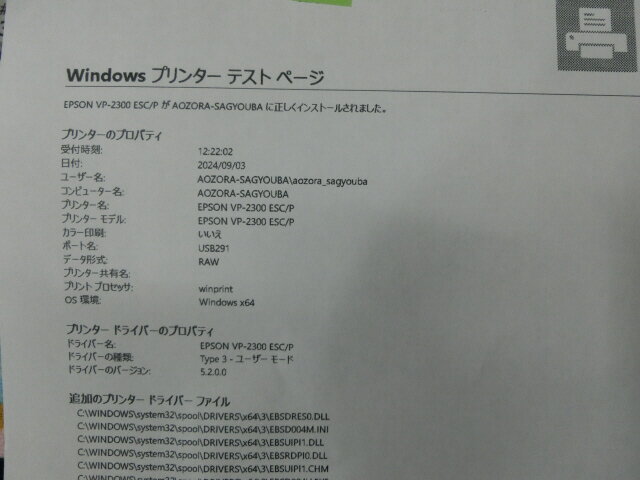 Windows プリンター テスト ページ
EPSON VP-2300 ESC/P が AOZORA-SAGYOUBA に正しくインストールされました。
プリンターのプロパティ
受付時刻: 12:22:02
日付: 2024/09/03
ユーザー名: AOZORA-SAGYOUBA\aozora_sagyouba
コンピューター名: AOZORA-SAGYOUBA
プリンター名: EPSON VP-2300 ESC/P
プリンター モデル: EPSON VP-2300 ESC/P
カラー印刷: いいえ
ポート名: USB291
データ形式: RAW
プリンター共有名:
プリント プロセッサ: winprint
OS 環境: Windows x64
プリンター ドライバーのプロパティ
ドライバー名: EPSON VP-2300 ESC/P
ドライバーの種類: Type 3 - ユーザー モード
ドライバーのバージョン: 5.2.0.0
追加のプリンター ドライバー ファイル
C:\WINDOWS\system32\spool\DRIVERS\x64\3\EBSDRES0.DLL
C:\WINDOWS\system32\spool\DRIVERS\x64\3\EBSD004M.INI
C:\WINDOWS\system32\spool\DRIVERS\x64\3\EBSUIPI1.DLL
C:\WINDOWS\system32\spool\DRIVERS\x64\3\EBSRDPI0.DLL
C:\WINDOWS\system32\spool\DRIVERS\x64\3\EBSUIPI1.CHM